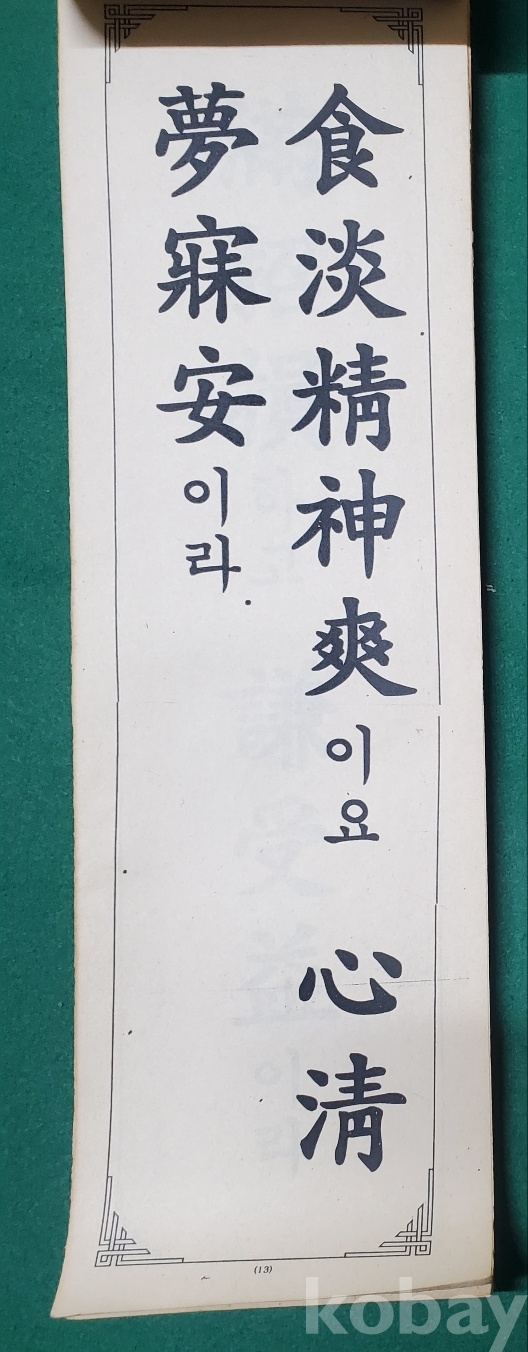 食淡精神爽이요 心淸
夢寐安이라
(13)
kobay